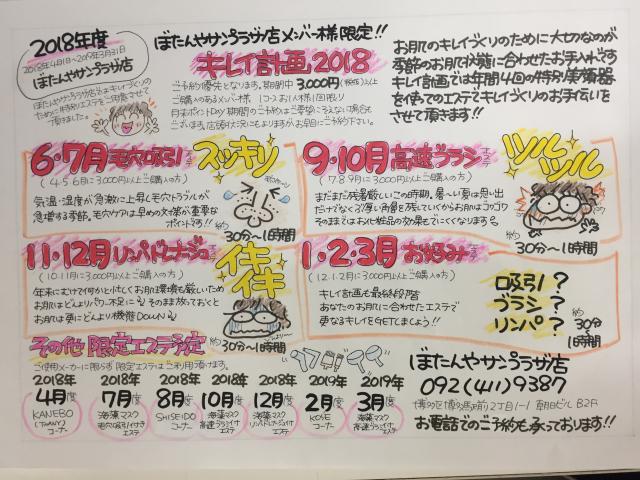 2018年度
2018年4月1日〜2019年3月31日
ぼたんやサンプラザ店
ぼたんやサンプラザ店ではキレイづくりの
ために特別エステをご用意させて
頂きました。
ぼたんやサンプラザ店メンバー様限定!!
キレイ計画2018
ご予約優先となります。期間中 3,000円(税抜)以上
ご購入のあるメンバー様 1コースお1人様1回限り
ございます。店頭状況にもよりますがお早目にご予約下さい。
お肌のキレイづくりのために大切なのが
季節のお肌状態に合わせたお手入れです
キレイ計画では年間4回の特別美容器
を使ってのエステでキレイづくりのお手伝いを
させて頂きます!!
6・7月 毛穴吸引エステ スッキリ
(4.5.6月に3000円以上ご購入の方)
気温・湿度が急激に上昇し毛穴トラブルが
急増する季節。毛穴ケアは早めの対策が重要な
ポイントです!!
約30分〜1時間
9・10月 高速ブラシエステ ツルツル
(7.8.9月に3000円以上ご購入の方)
まだまだ残暑厳しいこの時期。暑〜い夏は思い出
だけでなく厚い角質を残していくからお肌はゴワゴワ
そのままではお化粧品の効果もでにくくなります
約30分〜1時間
11・12月 リンパドレナージュ イキイキ
(10.11月に3000円以上ご購入の方)
年末にむけて何かと忙しくお肌環境も厳しいため
お肌はどんよりパワー不足に そのまま放っておくと
お肌は更にどんより機能DOWN
約30分〜1時間
1・2・3月 お好みエステ
(12.1.2月に3000円以上ご購入の方)
キレイ計画も最終段階
あなたのお肌に合わせたエステで
更なるキレイをGETしましょう!!
吸引?
ブラシ?
リンパ?
約30分〜1時間
その他 限定エステ予定
ご使用メーカーに限らず 限定エステはご利用頂けます。
2018年 2018年 2018年 2018年 2018年 2019年 2019年
4月度 7月度 8月度 10月度 12月度 2月度 3月度
KANEBO
(TWANY)
コーナー
海藻マスク
毛穴吸引付き
エステ
SHISEIDO
コーナー
海藻マスク
高速ブラシ付
エステ
海藻マスク
リンパドレナージュ付
エステ
KOSE
コーナー
海藻マスク
高速ブラシ付
エステ
ぼたんやサンプラザ店
092(411)9387
博多区博多駅前2丁目1-1 朝日ビルB2F
お電話でのご予約も承っております!!